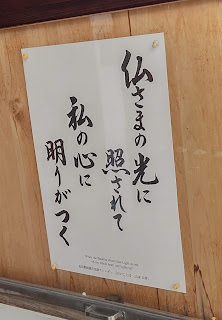 仏さまの光に
照されて
私の心に
明りがつく